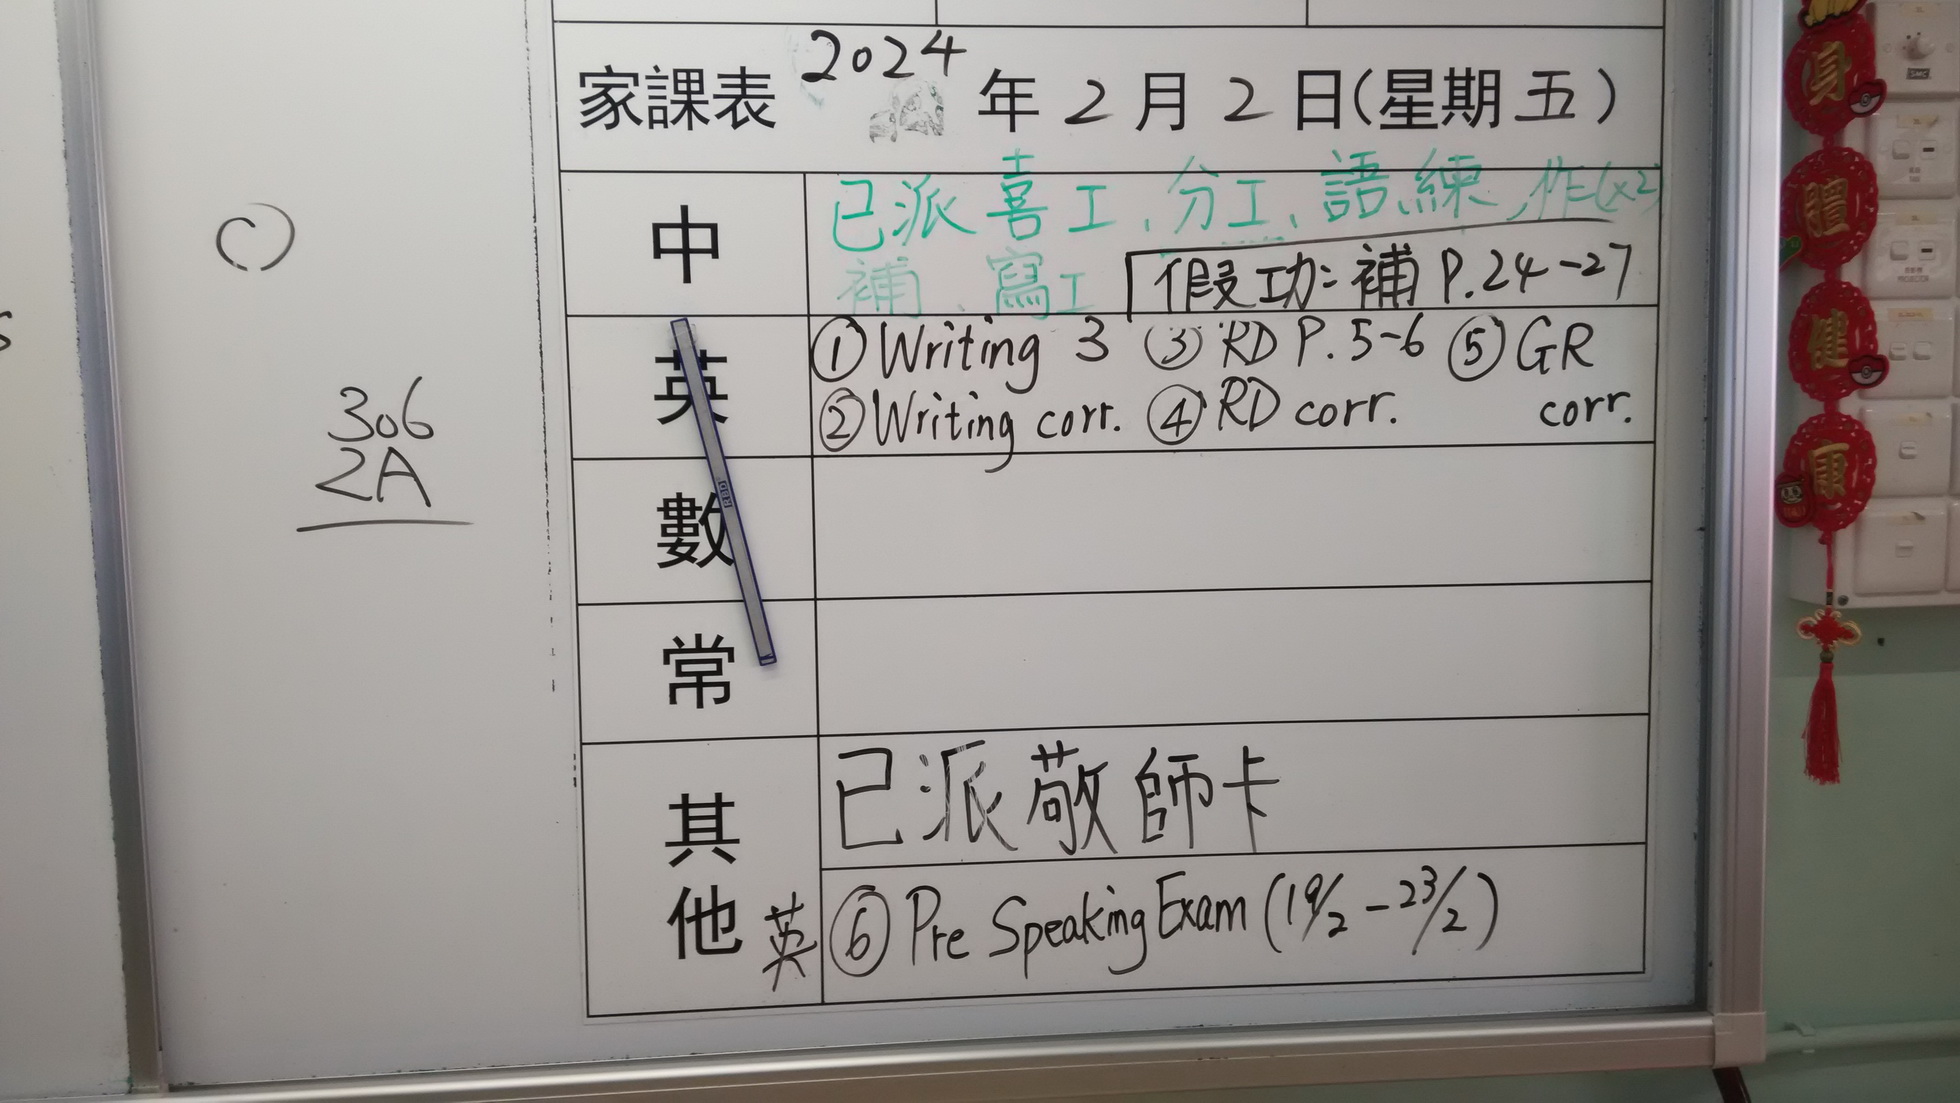 家課表 2024 年 2 月 2 日(星期 五)
中
已派 喜工、分工、語練,作(x2)
補、寫工
假功: 補 P.24-27
英
① Writing 3 ③ RD P.5-6 ⑤ GR
② Writing corr. ④ RD corr. corr.
數
常
其
他
已派敬師卡
英 ⑥ Pre Speaking Exam (19/2 - 23/2)
306
2A
身
體
健
康